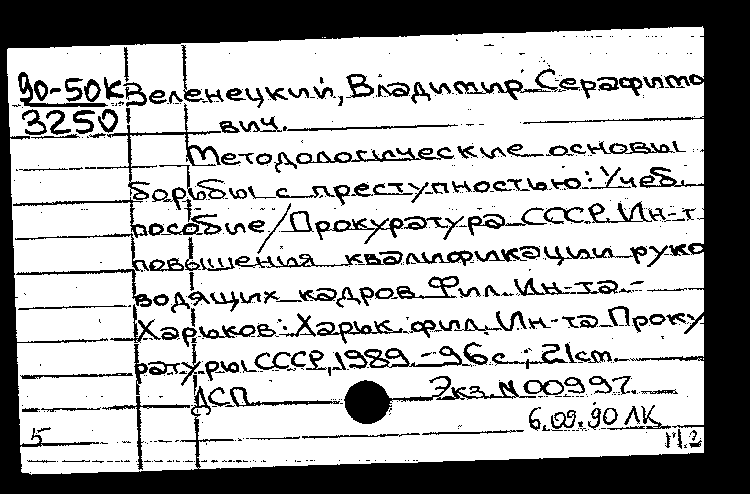 90-50к Зеленецкий, Владимир Серафимо
3250 вич.
Методологические основы
борьбы с преступностью: Учеб.
пособие / Прокуратура СССР. Ин-т
повышения квалификации руко
водящих кадров. Фил. Ин-та. -
Харьков: Харьк. фил. Ин-та Проку
ратуры СССР, 1989. - 96с.; 21см.
ДСП Экз. N 00997.
6.09.90 ЛК
5